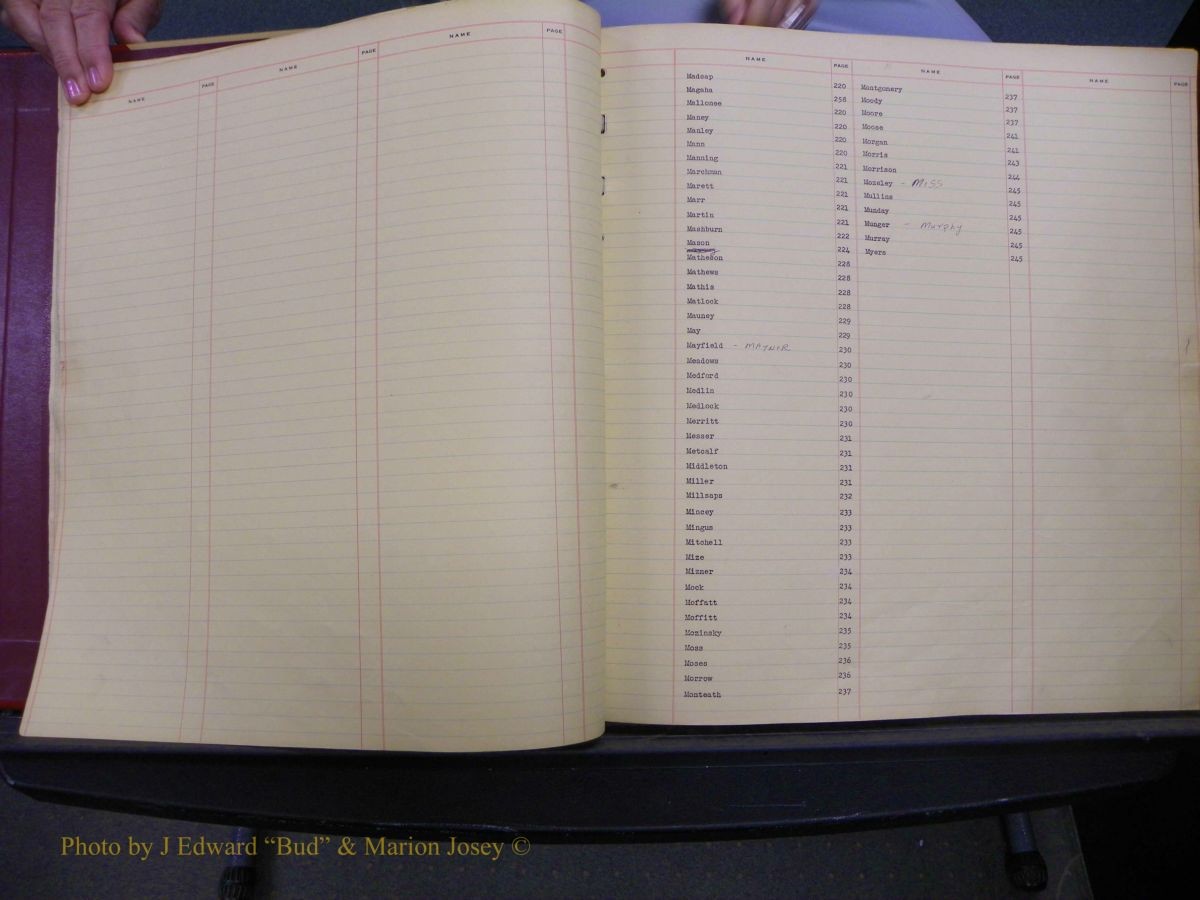 NAME PAGE NAME PAGE NAME PAGE
NAME PAGE NAME PAGE NAME PAGE
Madcap 220
Magaha 258
Mallonee 220
Maney 220
Manley 220
Mann 220
Manning 221
Marchman 221
Marett 221
Marr 221
Martin 221
Mashburn 222
Mason 224
Matheson 228
Mathews 228
Mathis 228
Matlock 228
Mauney 229
May 229
Mayfield - MAYNOR 230
Meadows 230
Medford 230
Medlin 230
Medlock 230
Merritt 230
Messer 231
Metcalf 231
Middleton 231
Miller 231
Millsaps 232
Mincey 233
Mingus 233
Mitchell 233
Mize 233
Mizner 234
Mock 234
Moffatt 234
Moffitt 234
Mozinsky 235
Moss 235
Moses 236
Morrow 236
Monteath 237
Montgomery 237
Moody 237
Moore 237
Moose 241
Morgan 241
Morris 243
Morrison 244
Mozeley - MISS 245
Mullins 245
Munday 245
Munger - Murphy 245
Murray 245
Myers 245
Photo by J Edward “Bud” & Marion Josey ©